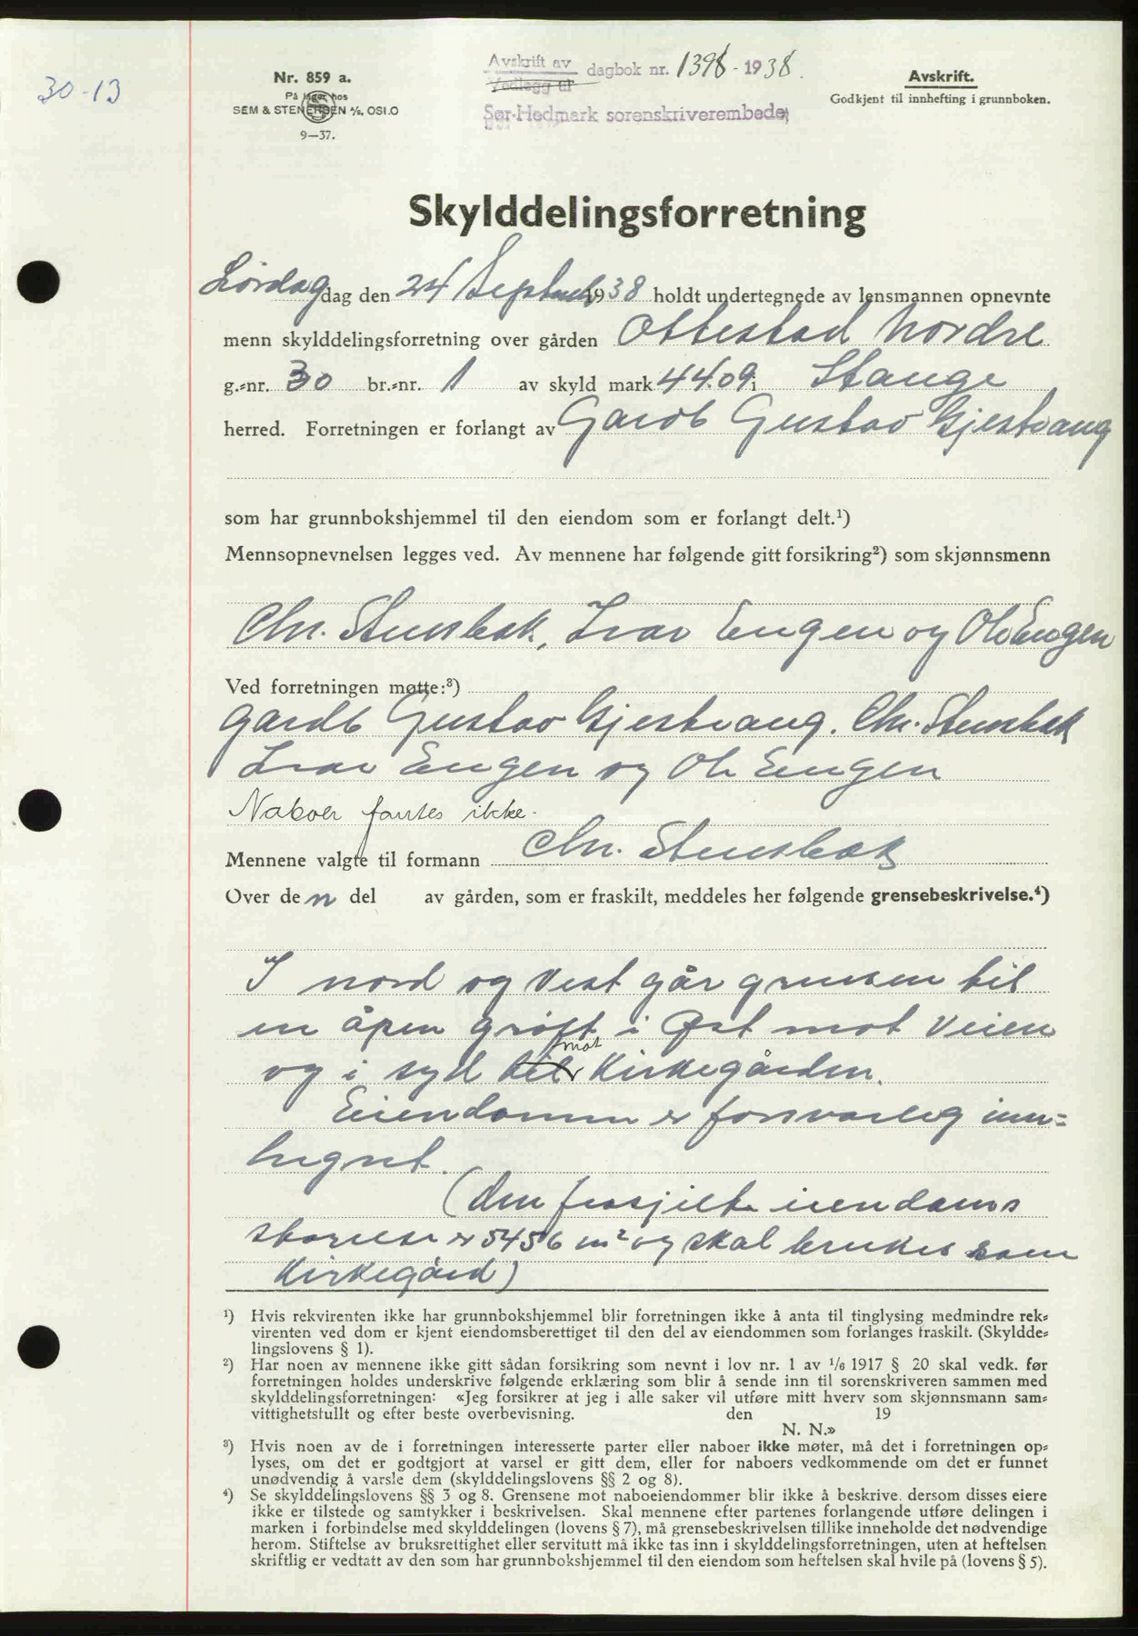 30-13
Nr. 859 a.
På lager hos
SEM & STENERSEN A/S, OSLO
9—37.
Avskrift av
Vedlegg til
dagbok nr. 1398-1938.
Sør-Hedmark sorenskriverembede
Avskrift.
Godkjent til innhefting i grunnboken.
Skylddelingsforretning
Lørdag dag den 24 September 1938 holdt undertegnede av lensmannen opnevnte
menn skylddelingsforretning over gården Ottestad Nordre
g.-nr. 30 br.-nr. 1 av skyld mark 44.09 i Stange
herred. Forretningen er forlangt av Gardb Gustav Gjestvang
som har grunnbokshjemmel til den eiendom som er forlangt delt.¹)
Mennsopnevnelsen legges ved. Av mennene har følgende gitt forsikring²) som skjønnsmenn
Chr. Stensbak, Ivar Engen og Ole Engen
Ved forretningen møtte:³)
Gardb Gustav Gjestvang. Chr. Stensbak
Ivar Engen og Ole Engen
Naboer fantes ikke.
Mennene valgte til formann Chr. Stensbak
Over den del av gården, som er fraskilt, meddeles her følgende grensebeskrivelse.⁴)
I nord og Vest går grensen til
en åpen grøft i Øst mot Veien
og i syd til mot Kirkegården.
Eiendommen er forsvarlig inn=
hegnet.
(den frasjilte eiendoms
størrelse er 5456 m² og skal brukes som
Kirkegård)
¹) Hvis rekvirenten ikke har grunnbokshjemmel blir forretningen ikke å anta til tinglysing medmindre rek-
virenten ved dom er kjent eiendomsberettiget til den del av eiendommen som forlanges fraskilt. (Skyldde-
lingslovens § 1).
²) Har noen av mennene ikke gitt sådan forsikring som nevnt i lov nr. 1 av 1/6 1917 § 20 skal vedk. før
forretningen holdes underskrive følgende erklæring som blir å sende inn til sorenskriveren sammen med
skylddelingsforretningen: «Jeg forsikrer at jeg i alle saker vil utføre mitt hverv som skjønnsmann sam-
vittighetsfullt og efter beste overbevisning. den 19
N. N.»
³) Hvis noen av de i forretningen interesserte parter eller naboer ikke møter, må det i forretningen op-
lyses, om det er godtgjort at varsel er gitt dem, eller for naboers vedkommende om det er funnet
unødvendig å varsle dem (skylddelingslovens §§ 2 og 8).
⁴) Se skylddelingslovens §§ 3 og 8. Grensene mot naboeiendommer blir ikke å beskrive, dersom disses eiere
ikke er tilstede og samtykker i beskrivelsen. Skal mennene efter partenes forlangende utføre delingen i
marken i forbindelse med skylddelingen (lovens § 7), må grensebeskrivelsen tillike inneholde det nødvendige
herom. Stiftelse av bruksrettighet eller servitutt må ikke tas inn i skylddelingsforretningen, uten at heftelsen
skriftlig er vedtatt av den som har grunnbokshjemmel til den eiendom som heftelsen skal hvile på (lovens § 5).